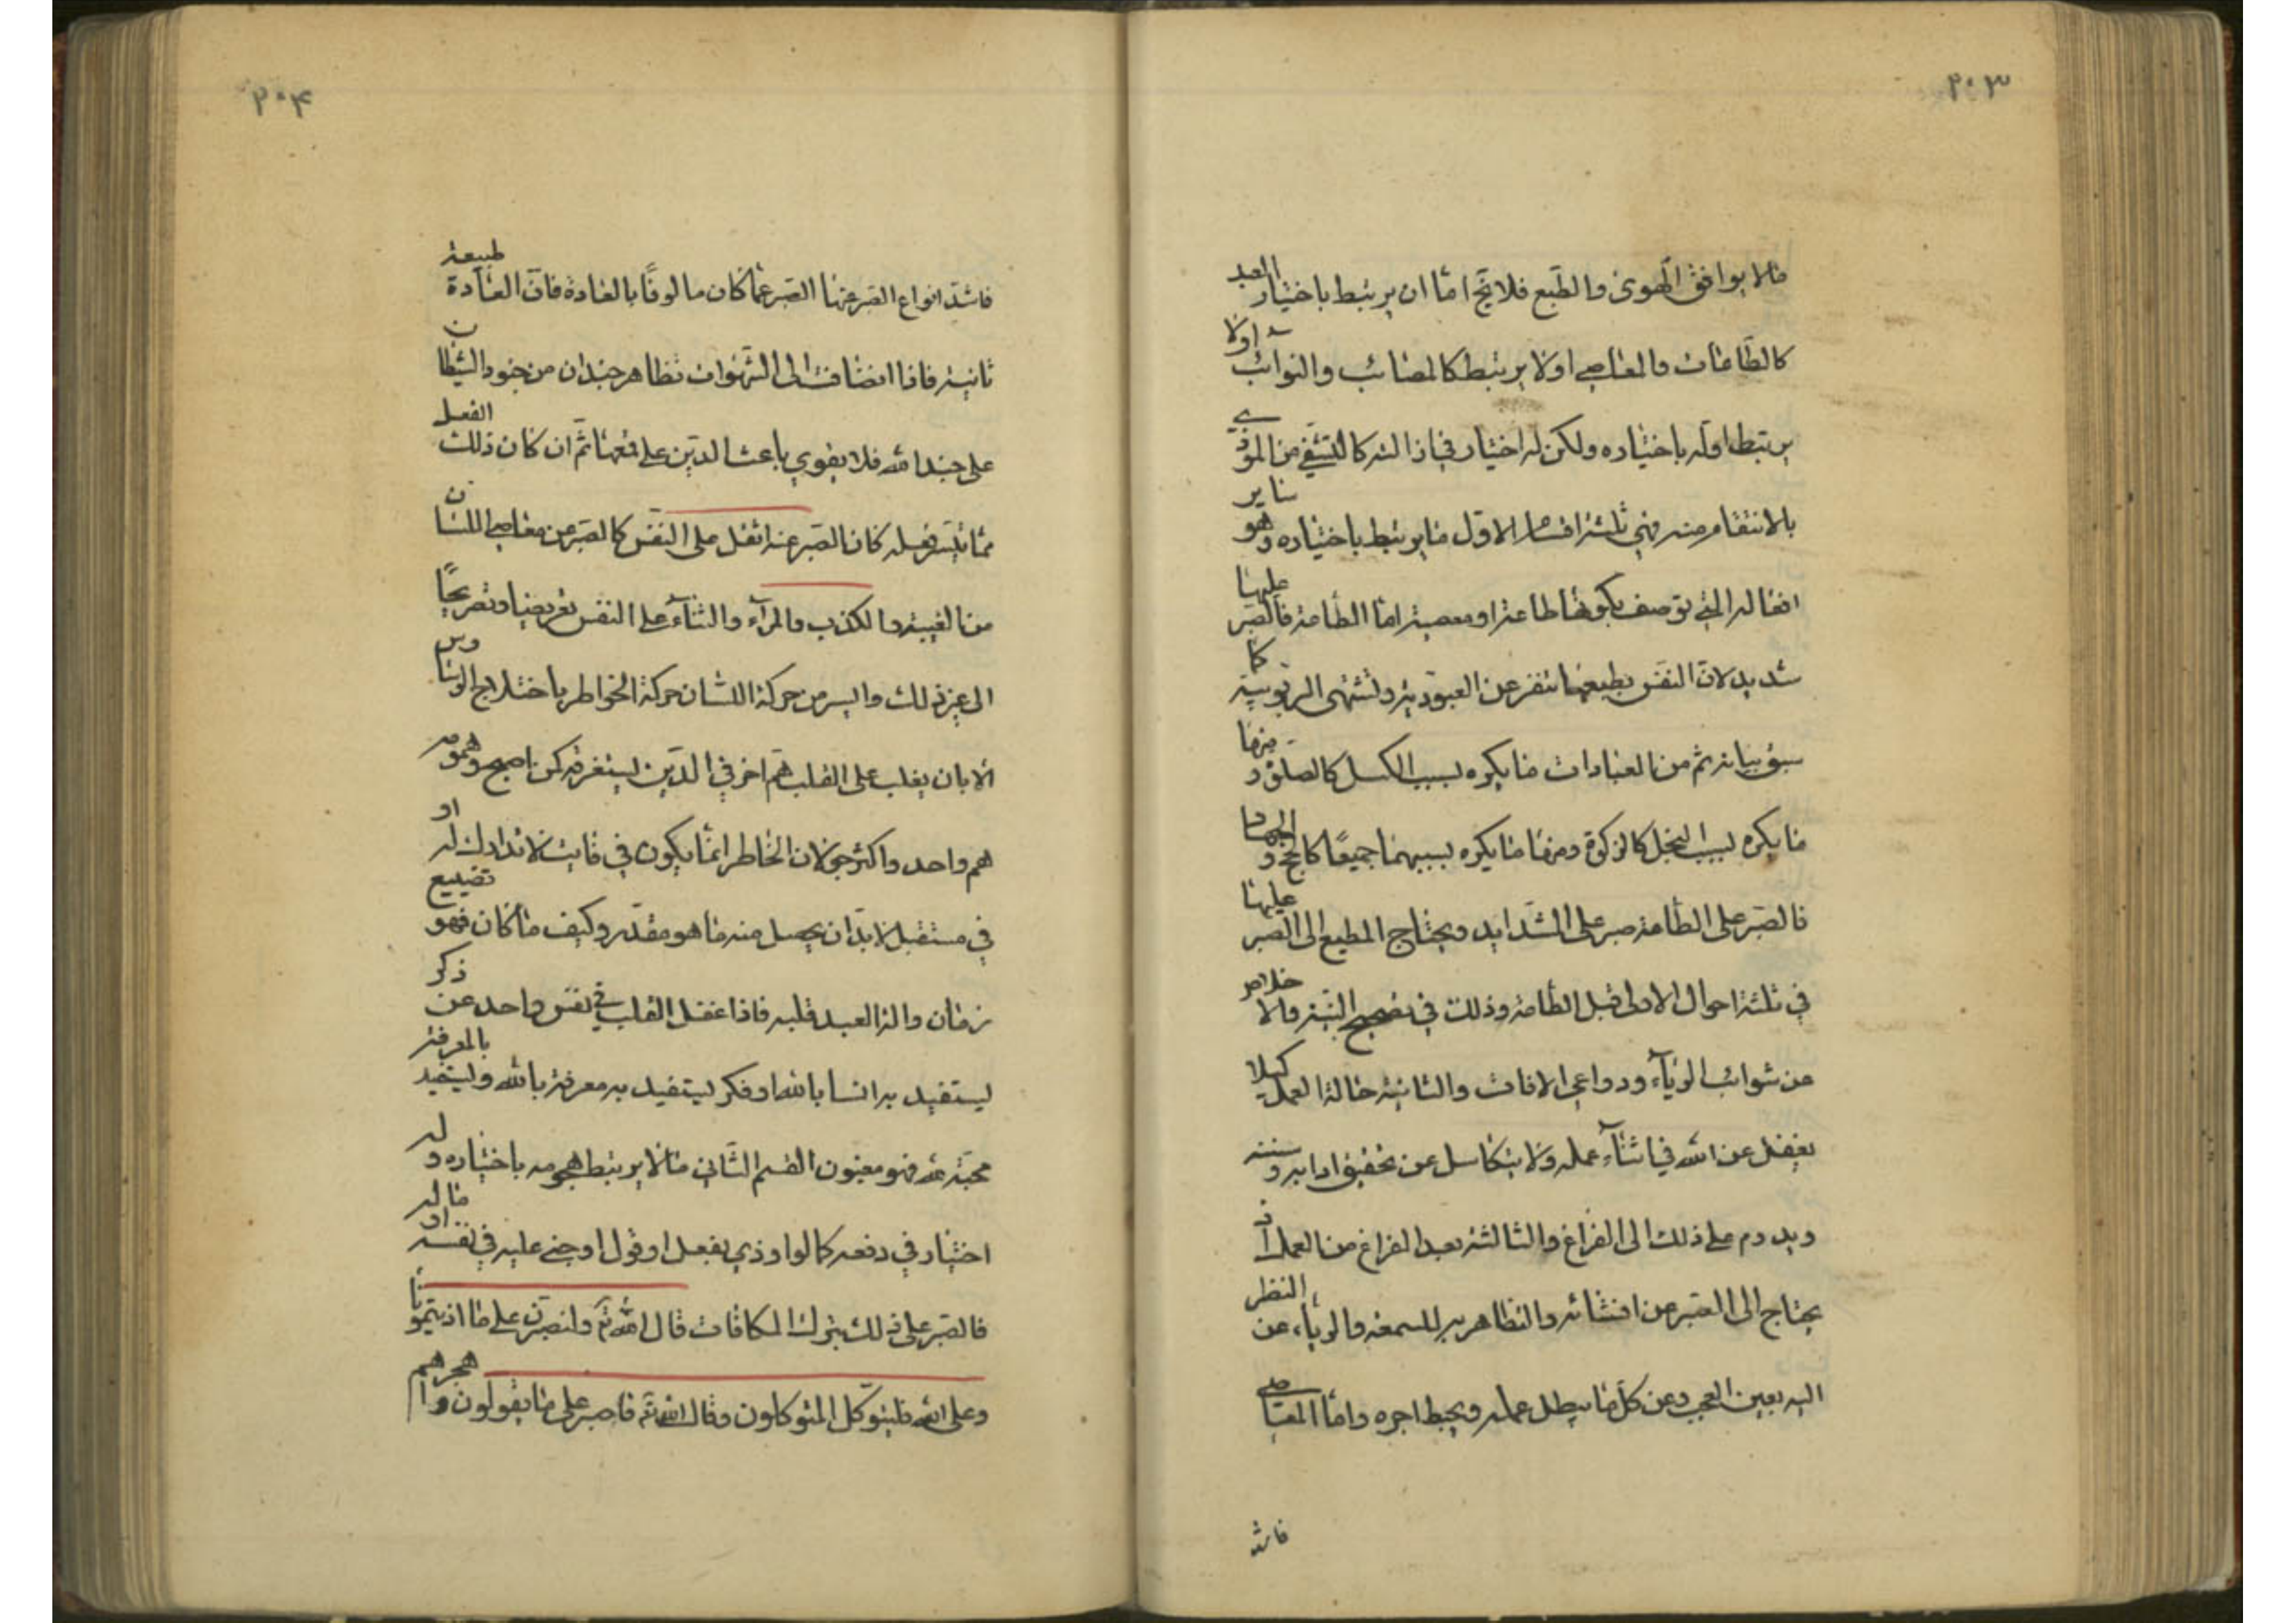 ٢٠٣
مالا يوافق الهوى والطبع فلا يخ اما ان يرتبط باختيار العبد
كالطاعات والمعاصي اولا يرتبط كالمصائب والنوائب اولا
يرتبط اوله باختياره ولكن له اختيار في ازالته كالتشفي من الموذي
بالانتقام منه فهي ثلثة اقسام الاول ما يرتبط باختياره وهو ساير
افعاله التي توصف بكونها طاعة او معصية اما الطاعة فالصبر عليها
شديد لان النفس بطبعها تنفر عن العبودية وتشتهي الربوبية كما
سبق بيانه ثم من العبادات ما يكره بسبب الكسل كالصلوة و منها
ما يكره بسبب البخل كالزكوة ومنها ما يكره بسببهما جميعًا كالحج و الجهاد
فالصبر على الطاعة صبر على الشدايد ويحتاج المطيع الى الصبر عليها
في ثلثة احوال الاولى قبل الطاعة وذلك في تصحيح النية والا خلاص
من شوائب الرياء ودواعي الافات والثانية حالة العمل كيلا
يغفل عن الله في اثناء عمله ولا يتكاسل عن تحقيق ادابه و سننه
ويدوم على ذلك الى الفراغ والثالثة بعد الفراغ من العمل اذ
يحتاج الى الصبر عن افشائه والتظاهر به للسمعة والرياء، عن النظر
اليه بعين العجب وعن كل ما يبطل عمله ويحبط اجره واما المعاصي
فاشد
٢٠٤
فاشد انواع الصبر عنها الصبر عما كان مالوفًا بالعادة فان العادة طبيعة
ثانية فاذا انضافت الى الشهوات تظاهر جندان من جنود الشيطان
على جند الله فلا يقوي باعث الدين على قمعها ثم ان كان ذلك الفعل
مما تيسر فعله كان الصبر عنه اثقل على النفس كالصبر عن معاصي اللسان
من الغيبة والكذب والمراء والثناء على النفس تعريضا وتصريحًا
الى غير ذلك وايسر من حركة اللسان حركة الخواطر باختلاج الوساوس
الا بان يغلب على القلب هم اخر في الدين يستغرقه كمن اصبح وهمومه
هم واحد واكثر جولان الخاطر انما يكون في فايت لا تدارك له او
في مستقبل لا بد ان يحصل منه ما هو مقدر وكيف ما كان فهو تضييع
زمان والة العبد قلبه فاذا غفل القلب في نفس واحد عن ذكر
يستفيد به انسا بالله او فكر ليستفيد به معرفة بالله وليستفيد بالمعرفة
محبة الله فهو مغبون القسم الثاني مالا يرتبط هجومه باختياره و له
اختيار في دفعه كما لو اوذي بفعل او قول او جني عليه في نفسه او ماله
فالصبر على ذلك بترك المكافات قال الله تعٓ ولنصبرن على ما اذيتمونا
وعلى الله فليتوكل المتوكلون وقال الله تعٓ فاصبر على ما يقولون وا هجرهم